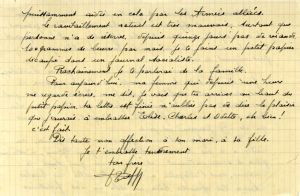 puissamment aidés en cela par les Armées alliées.
Le ravitaillement naturel est très mauvais, surtout que
personne n'a de réserve, depuis quinze jours pas de viande,
100 grammes de beurre par mois. Je te joins un petit papier
découpé dans un journal socialiste.
Prochainement je te parlerai de la famille.
Pour aujourd'hui, la femme qui depuis une heure
me regarde écrire, me dit, je vois que tu arrives au bout de
ton papier, ta lettre est finie n'oublie pas de dire le plaisir
que j'aurais à embrasser Charles et Odette, eh bien!
c'est fait.
Dis toute mon affection à ton mari, à ta fille.
Je t'embrasse tendrement
ton frère